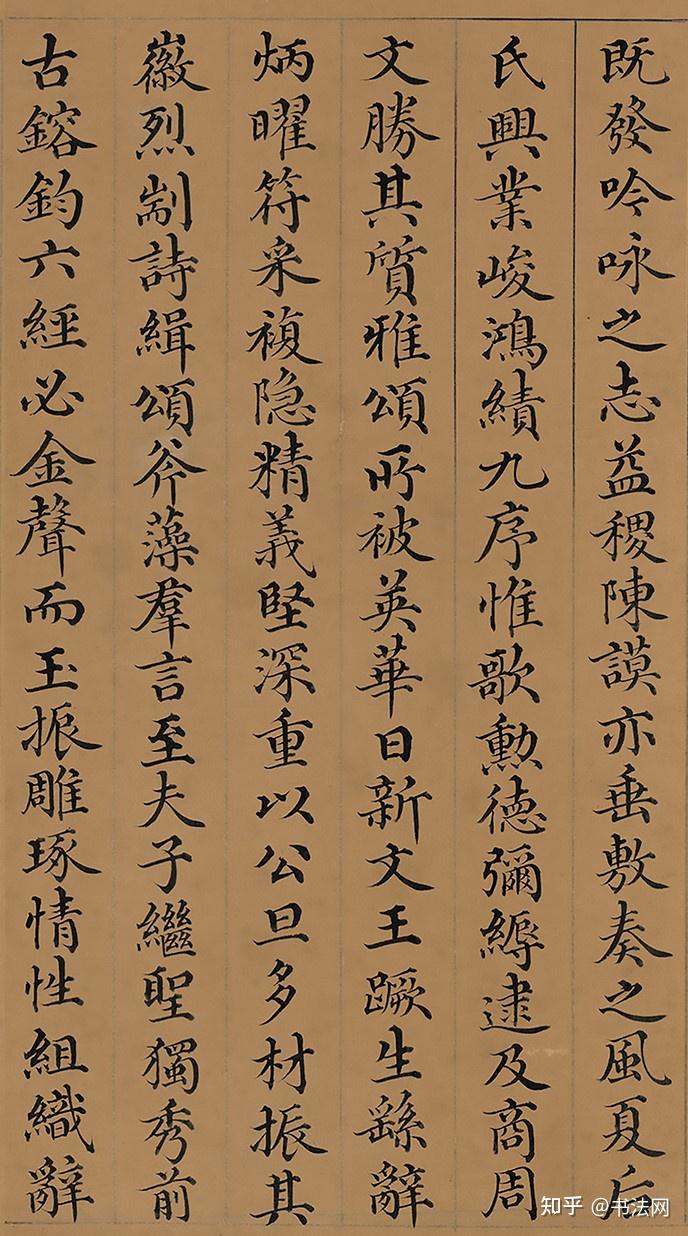 既發吟咏之志益稷陳謨亦垂敷奏之風夏后
氏興業峻鴻績九序惟歌勳德彌縟逮及商周
文勝其質雅頌所被英華日新文王蹶生繇辭
炳曜符采複隐精義堅深重以公旦多材振其
徽烈剬詩緝頌斧藻羣言至夫子繼聖獨秀前
古鎔鈞六經必金聲而玉振雕琢情性組織辭
知乎 @书法网